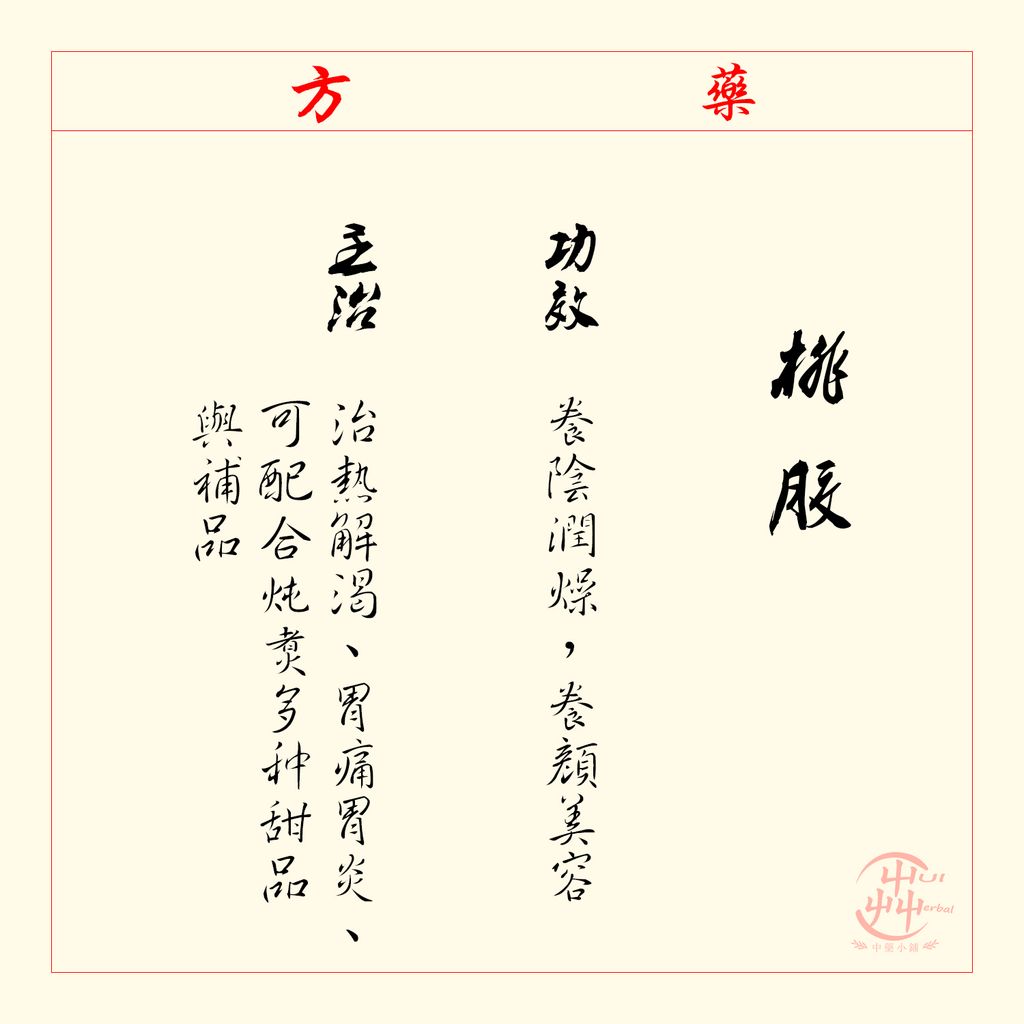 藥方
桃胶
功效
養陰潤燥，養顏美容
主治
治熱解渴、胃痛胃炎、
可配合炖煮多种甜品
與補品
Hui
Herbal
中藥小鋪